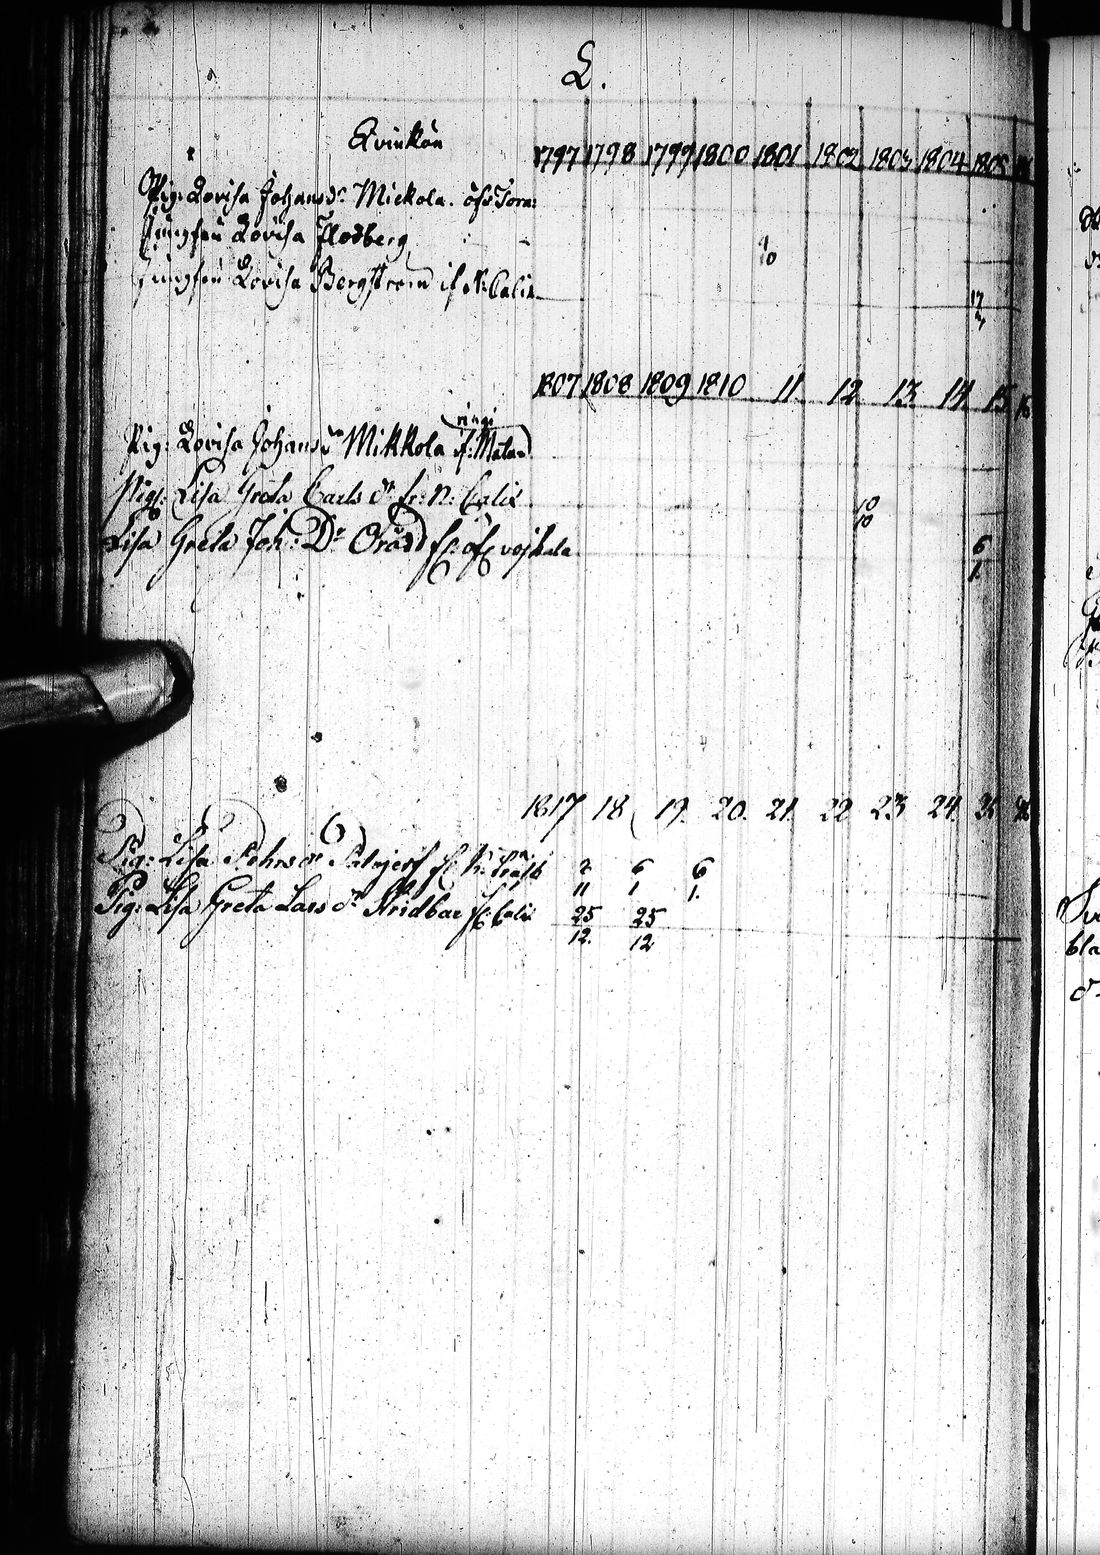 L.
Qvinkön
1797 1798 1799 1800 1801 1802 1803 1804 1805
Pig: Lovisa Johansdr Mickola. öfr Torn:
Jungfru Lovisa Flodberg 1/10
Jungfru Lovisa Bergström if N: Calix 17
1807 1808 1809 1810 11 12 13 14 15 16
Pig: Lovisa Johans dr Mikkola f: Mata
Pig: Lisa Greta Carls dr fr: N: Calix 10/10
Lisa Greta Joh: Dr fr öf vojkala 6/1
1817 18 19. 20. 21. 22 23 24. 25
Pig: Lisa Pehrs dr 2/11 6/1 6/1.
Pig: Lisa Greta Lars dr Stridbar fr: Calix 25/12. 25/12